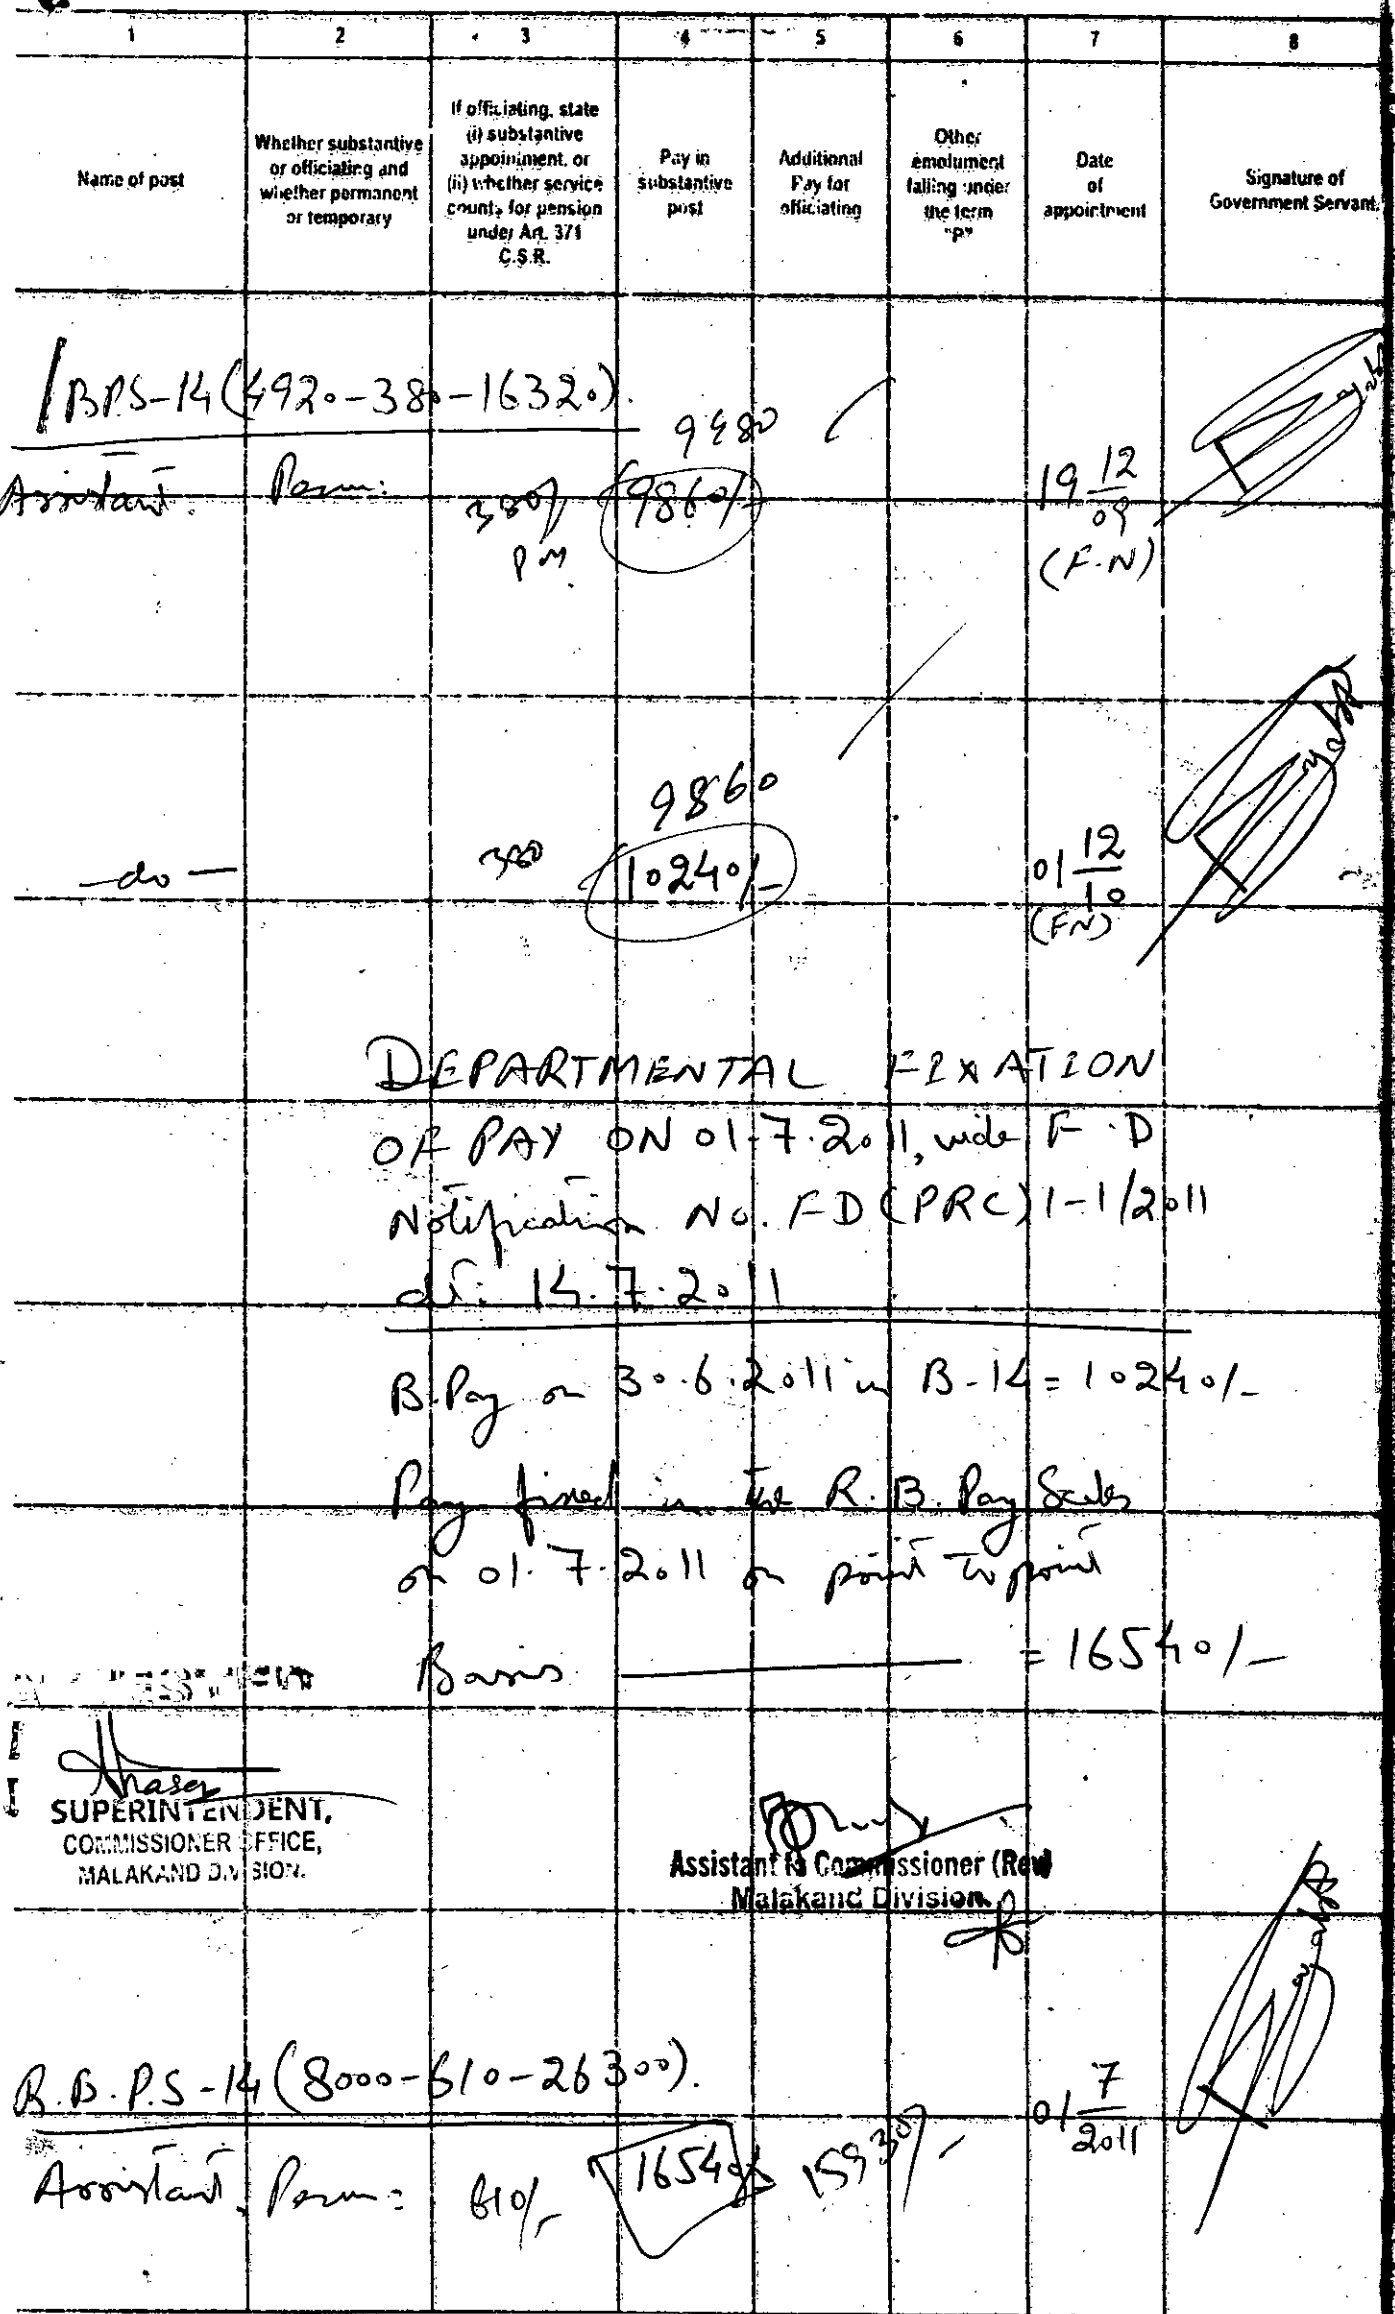 1 2 3 4 5 6 7 8
Name of post
Whether substantive
or officiating and
whether permanent
or temporary
If officiating, state
(i) substantive
appointment, or
(ii) whether service
counts for pension
under Art. 371
C.S.R.
Pay in
substantive
post
Additional
Pay for
officiating
Other
emolument
falling under
the term
"P"
Date
of
appointment
Signature of
Government Servant
BPS-14 (4920-380-16320).
9480
Assistant. Perm: 380/ 9860/- 19 12/09
P M (F.N)
9860
-do- 380 10240/- 01 12/10
(FN)
DEPARTMENTAL FIXATION
OF PAY ON 01.7.2011, vide F.D
Notification No. FD (PRC) 1-1/2011
dt: 14.7.2011
B.Pay on 30.6.2011 in B-14 = 10240/-
Pay fixed in the R.B. Pay Scales
on 01.7.2011 on point to point
Basis = 16540/-
SUPERINTENDENT,
COMMISSIONER OFFICE,
MALAKAND DIVISION.
Assistant to Commissioner (Rev)
Malakand Division.
R.B.P.S-14 (8000-610-26300).
01 7/2011
Assistant. Perm: 610/- 16540/- 15930/-